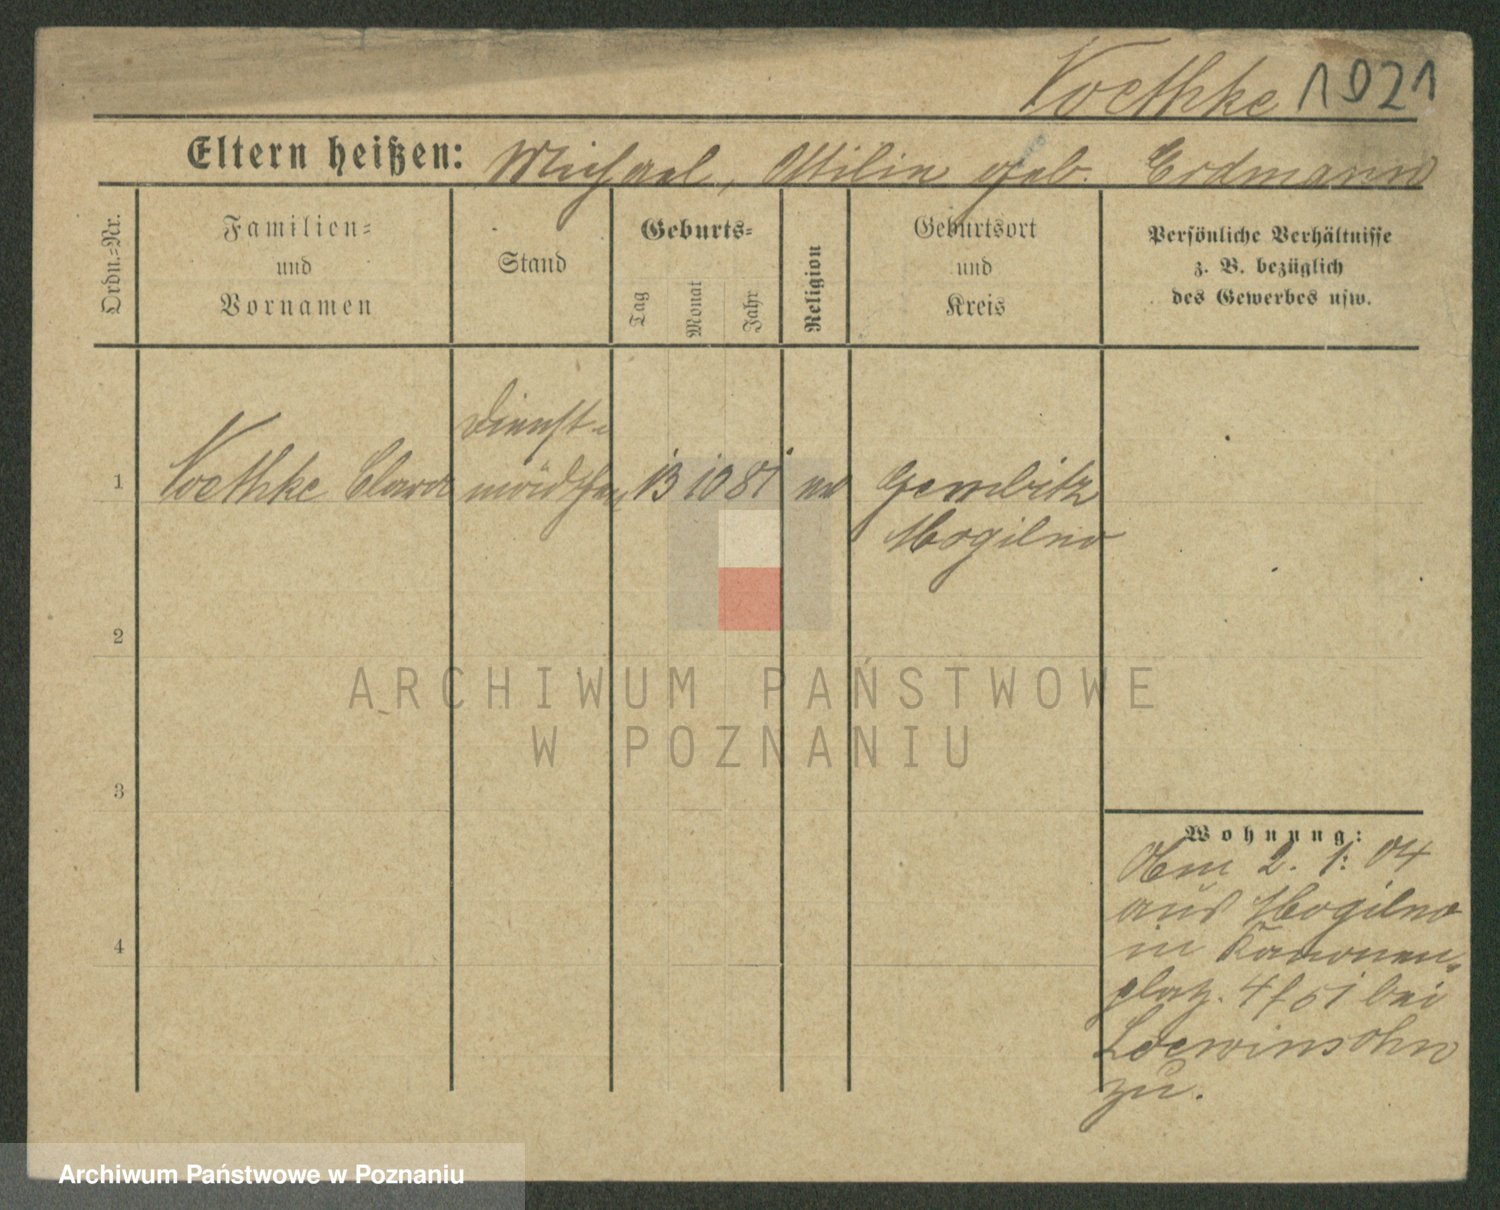 Voethke 1921
Eltern heißen: Michael, Ottilie geb. Erdmann
Ordn.-Nr.
Familien-
und
Vornamen
Stand
Geburts-
Tag
Monat
Jahr
Religion
Geburtsort
und
Kreis
Persönliche Verhältnisse
z. B. bezüglich
des Gewerbes usw.
Dienst-
1 Voethke Clara mädchen 13 10 87 ev Gembitz
Mogilno
2
3
4
Wohnung:
Am 2. 1. 04
aus Mogilno
in Kanonen-
platz. 4 bei
Loewinsohn
zu.
ARCHIWUM PAŃSTWOWE
W POZNANIU
Archiwum Państwowe w Poznaniu